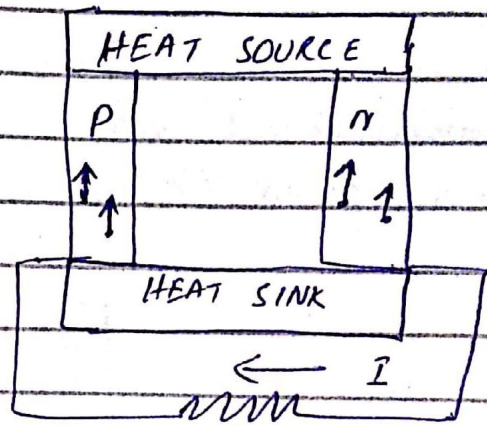 HEAT SOURCE
P N
HEAT SINK
I